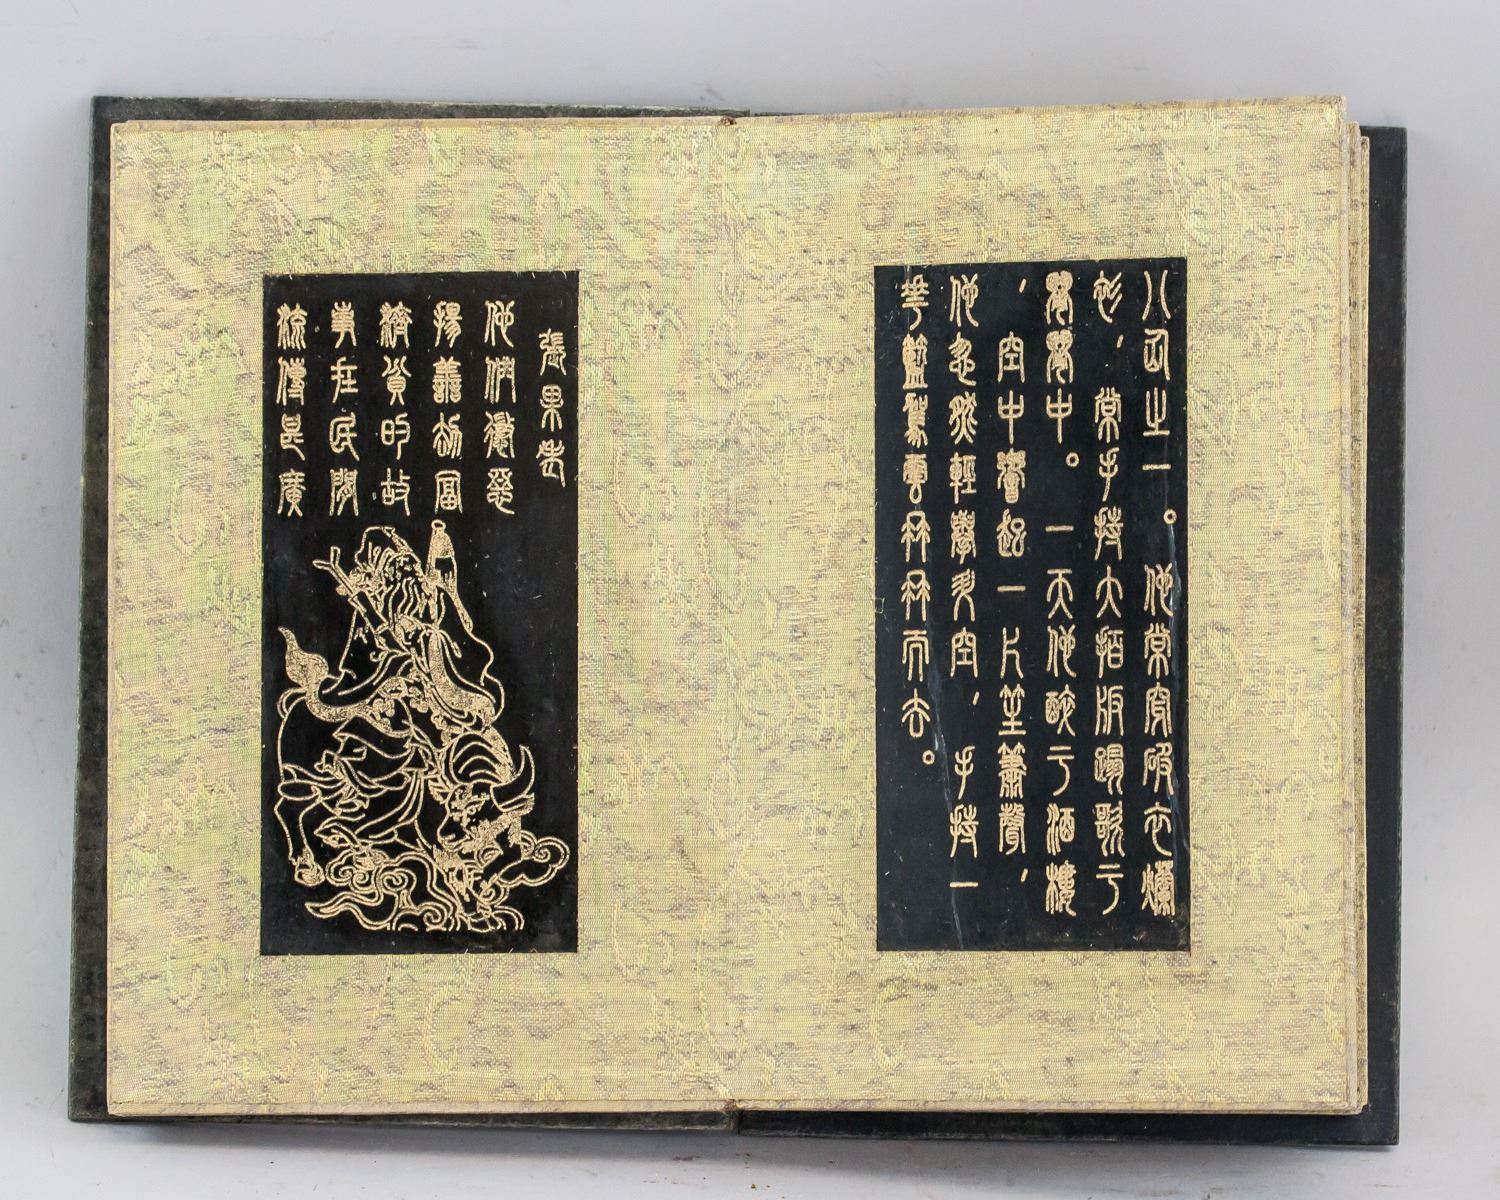 八仙之一。他常穿破衣爛
衫，常手持大拍板踏歌于
中。一天他醉于酒樓
，空中響起一片笙簫聲，
他忽然輕舉升空，手持一
花籃駕雲冉冉而去。
張果老
他懲惡
揚善劫富
濟貧的故
事在民間
流傳甚廣